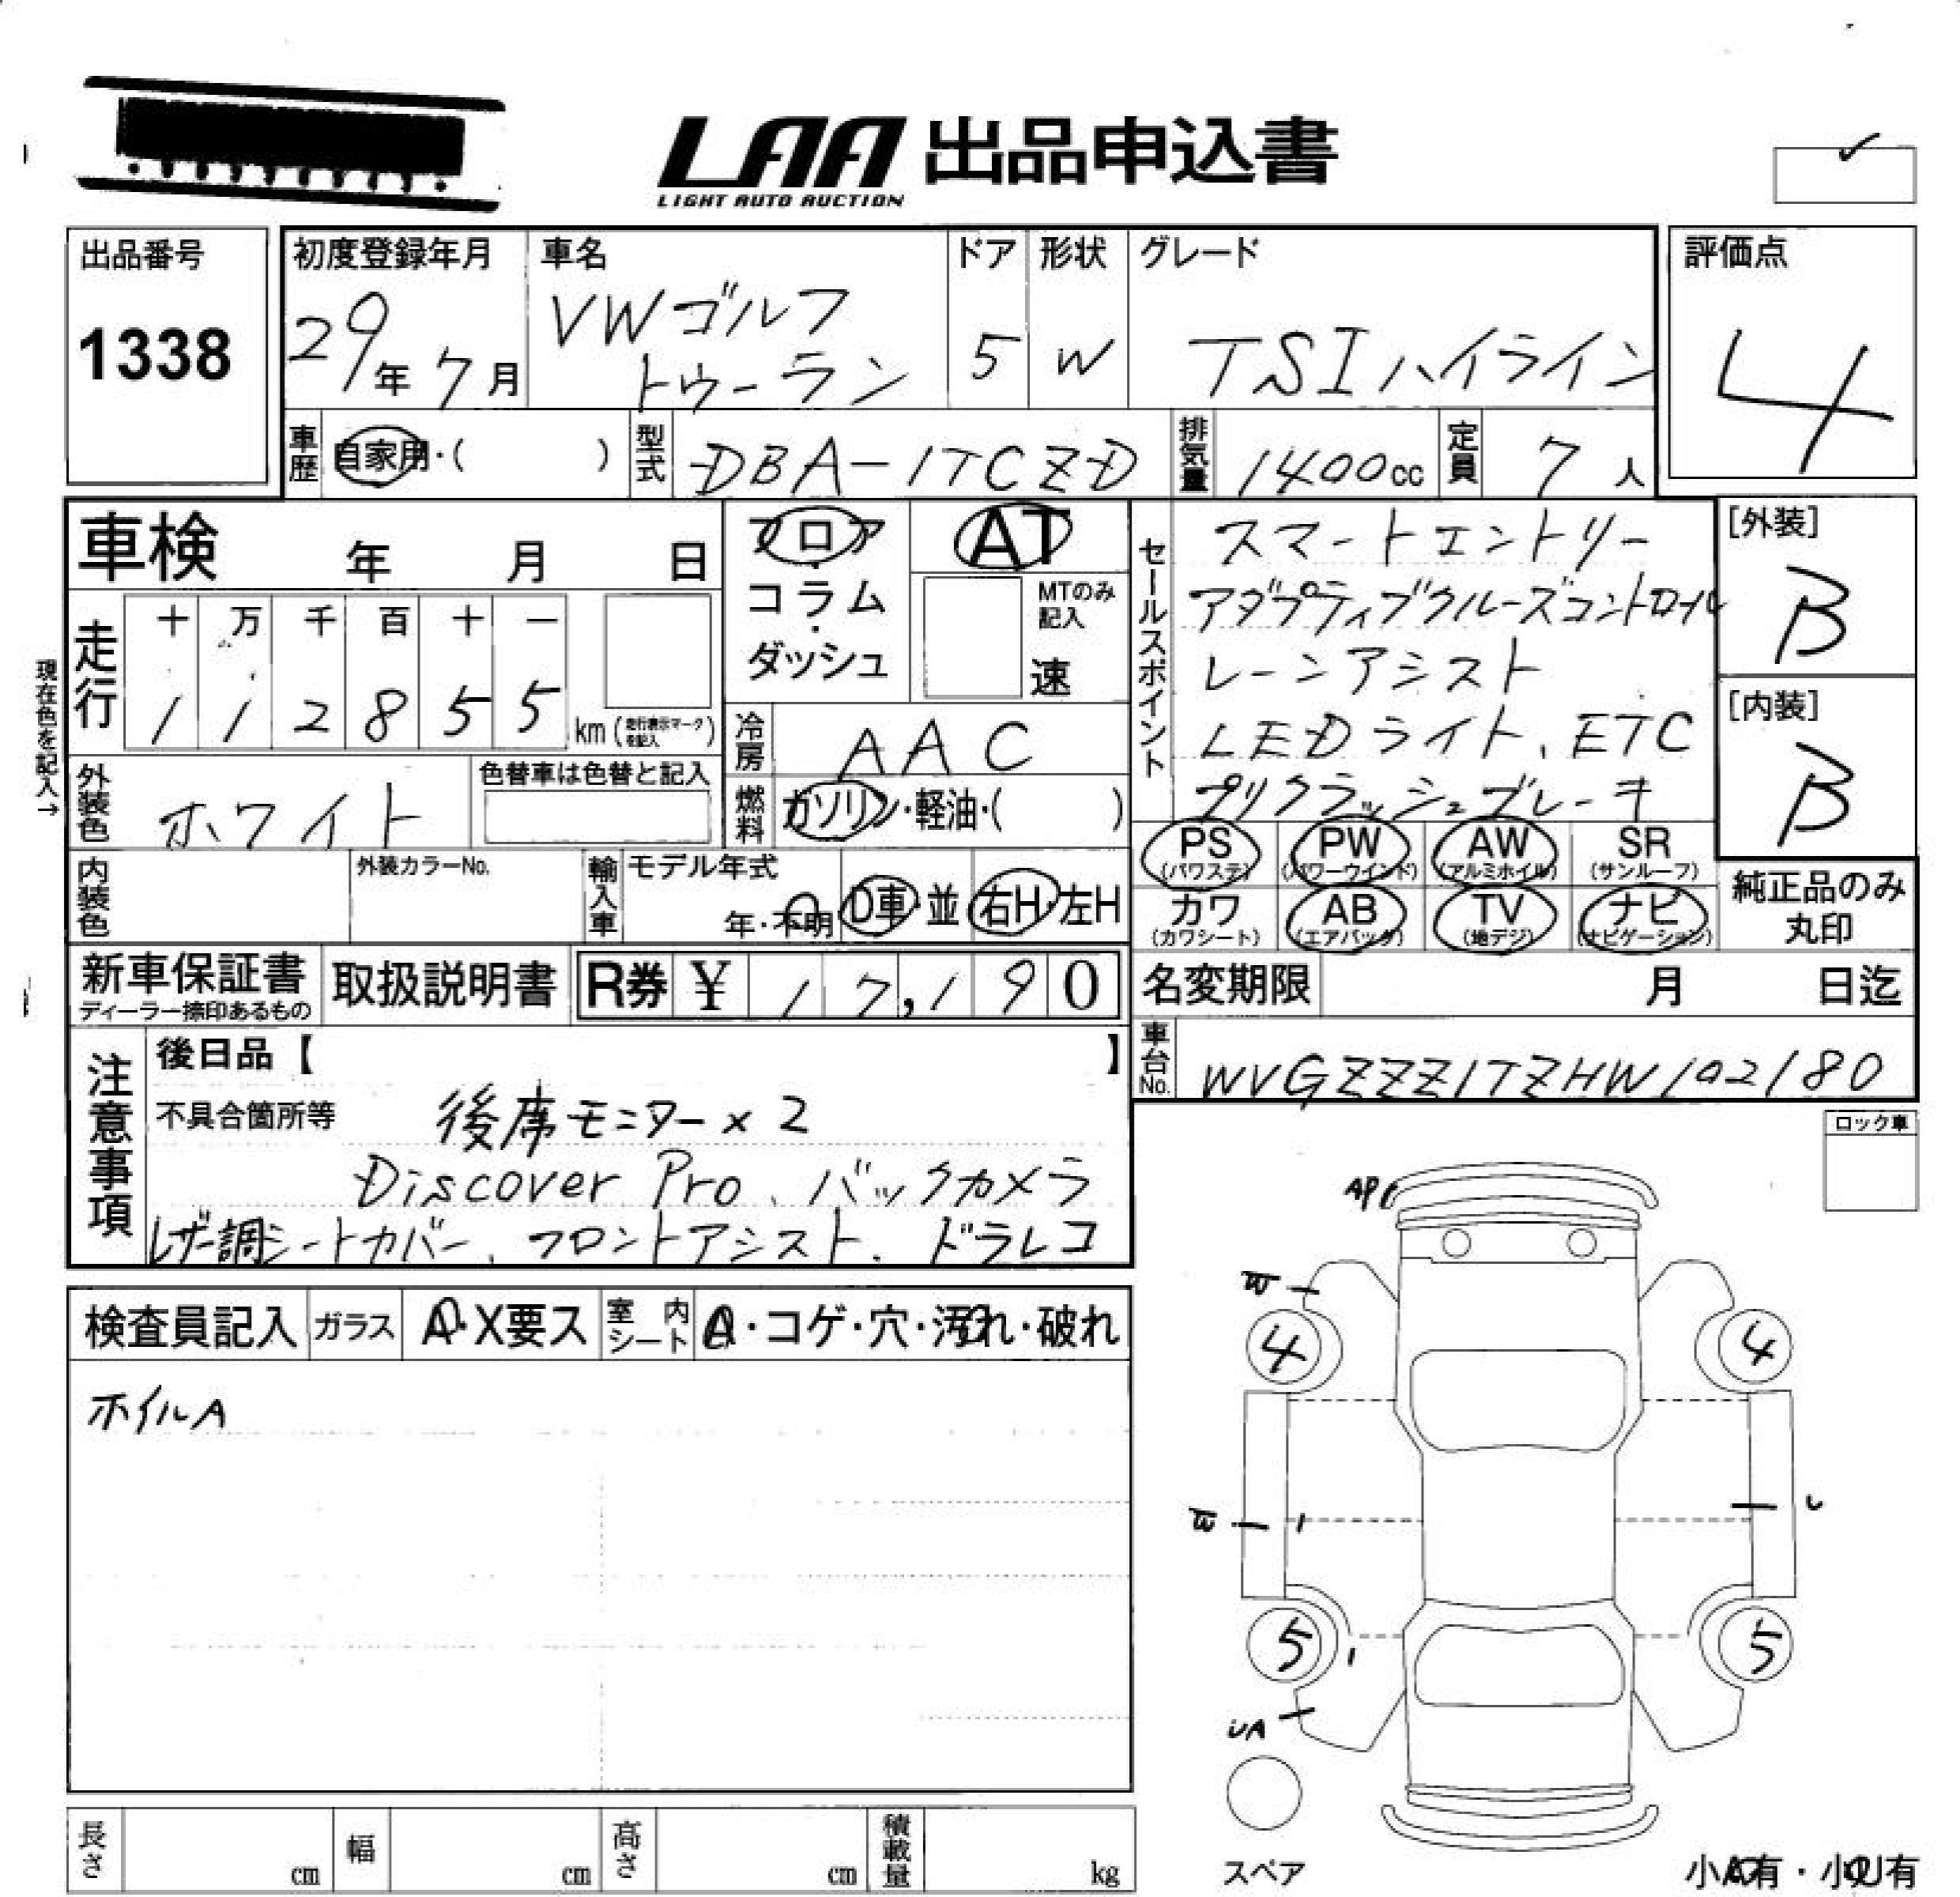 LAA 出品申込書
LIGHT AUTO AUCTION
出品番号
1338
初度登録年月
29年7月
車名
VWゴルフ
トゥーラン
ドア
5
形状
W
グレード
TSIハイライン
評価点
4
車歴 自家用・( )
型式 DBA-1TCZD
排気量 1400cc
定員 7人
車検 年 月 日
フロア・コラム・ダッシュ
AT
MTのみ記入
速
セールスポイント
スマートエントリー
アダプティブクルーズコントロール
レーンアシスト
LEDライト、ETC
プリクラッシュブレーキ
[外装]
B
[内装]
B
現在色を記入→
走行
十 万 千 百 十 一
1 1 2 8 5 5 km (走行表示マークを記入)
冷房 AAC
外装色 ホワイト
色替車は色替と記入
燃料 ガソリン・軽油・( )
内装色
外装カラーNo.
輸入車
モデル年式
年・不明
D車・並
右H・左H
PS (パワステ)
PW (パワーウインド)
AW (アルミホイル)
SR (サンルーフ)
カワ (カワシート)
AB (エアバック)
TV (地デジ)
ナビ (ナビゲーション)
純正品のみ
丸印
新車保証書
ディーラー捺印あるもの
取扱説明書
R券 ¥ 17,190
名変期限 月 日迄
車台No. WVGZZZ1TZHW102180
注意事項
後日品【 】
不具合箇所等 後席モニター×2
Discover Pro、バックカメラ
レザー調シートカバー、フロントアシスト、ドラレコ
ロック車
検査員記入
ガラス A・X要ス
室内シート A・コゲ・穴・汚れ・破れ
ホイルA
AP
4
4
5
5
UA
スペア
小A有・小U有
長さ cm
幅 cm
高さ cm
積載量 kg